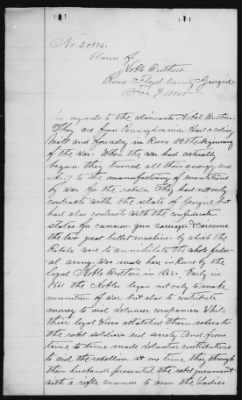 No. 20836.
Claim of
Noble Brothers
Rome Floyd County Georgia
In regards to the claimants Nobel Brothers.
They are from Pennsylvania Had a rolling
mill and foundry in Rome at the beginning
of the war. When the war had actually
began they turned all their energy and
skill to the manufacturing of munitions
of war for the rebels. They had not only
contracts with the state of Georgia, but
had also contracts with the confederate
states for cannon, gun carriages &
the bullet machine, by which the
Rebels to annihilate the whole feder-
al army. was made here in Rome by the
loyal Noble Brothers in 1862. Early in
1861 the Nobles began not only to make
munition of war but also to contribute
money to aid volunteer companies While
their loyal Wives attatched them selves to
the rebel soldiers aid society. And from
time to time made voluntary contributions
to aid the rebellion. at one time they through
their husbands presented the rebel government
with a rifle cannon to arm the Ladies